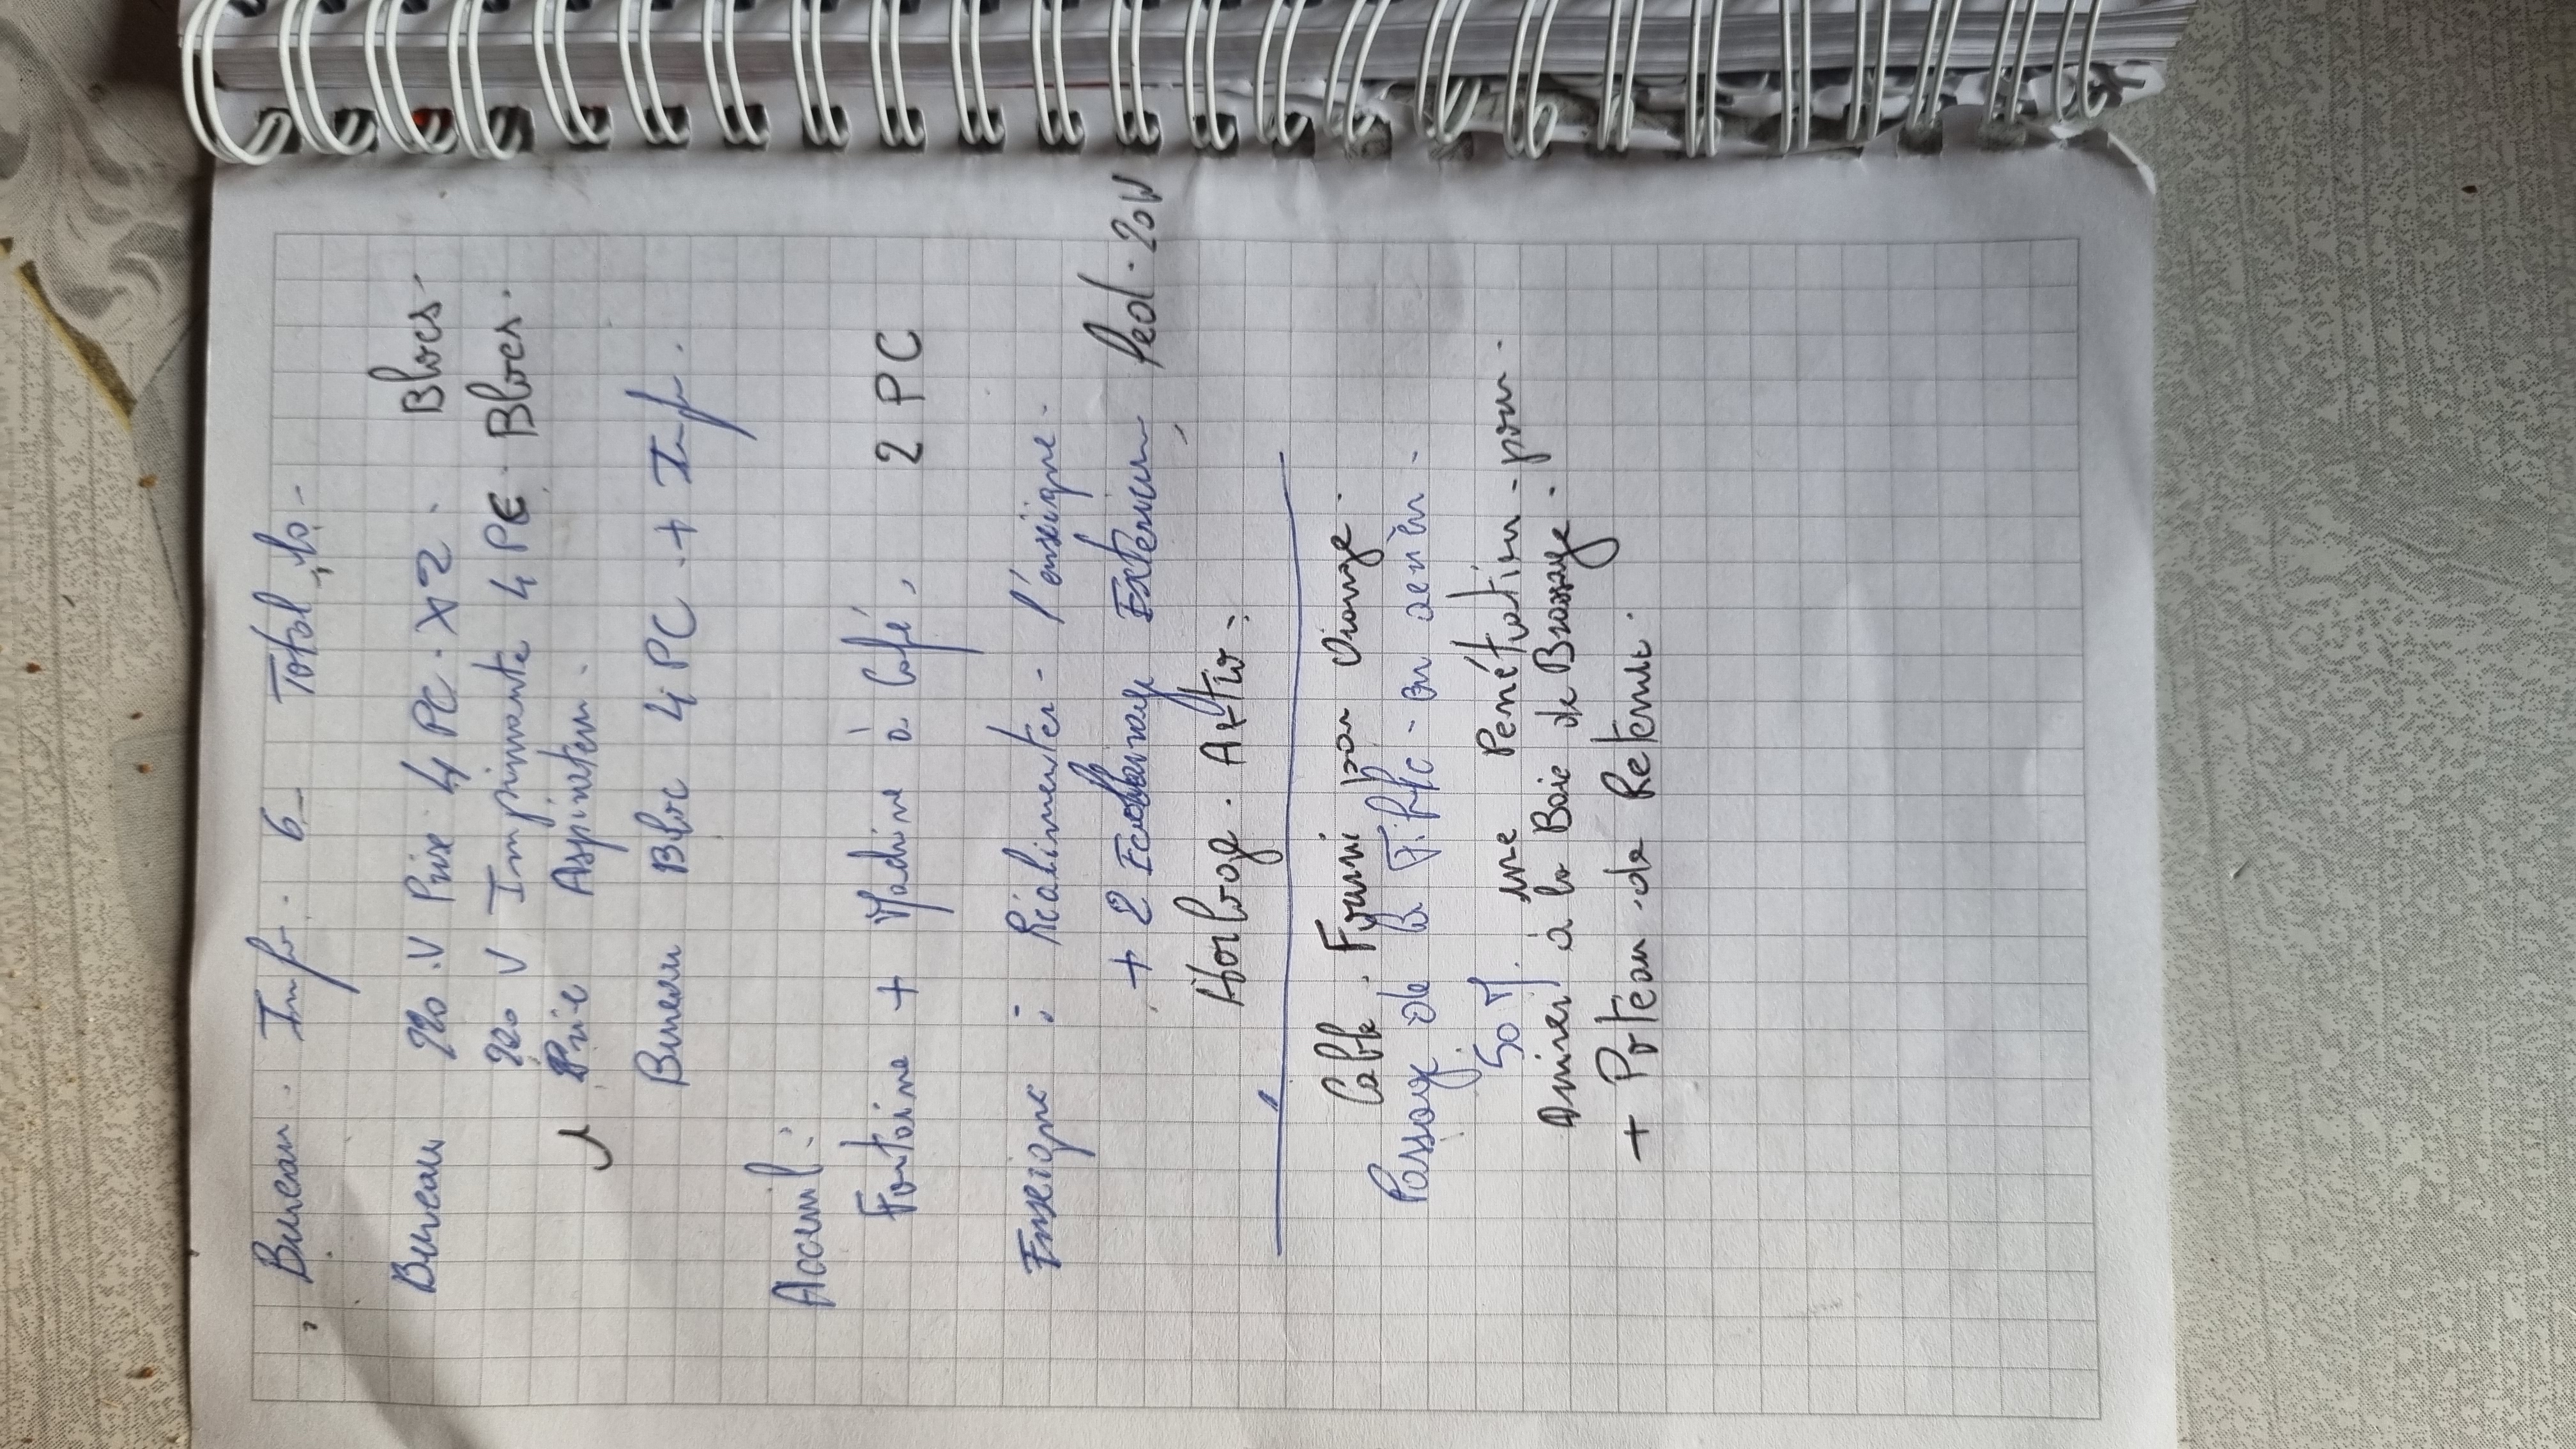 Bureau. Infr. 6 Total 10
Bureau 220 V Prise 4 PC. X2. Blocs
220 V Imprimante 4 PC Blocs.
1 Prise Aspirateur.
Bureau Bloc 4 PC + Infr.
Acceuil :
Fontaine + Machine à Café, 2 PC
Enseigne : Réalimenter l'enseigne
+ 2 Eclairage Extérieur Led 20W
Horloge. Astro.
Cable. Fourni par Orange.
Passage de la Fibre en aerien
50 M. une Penétration pour
Arriver à la Baie de Brassage.
+ Poteau de Retenue.